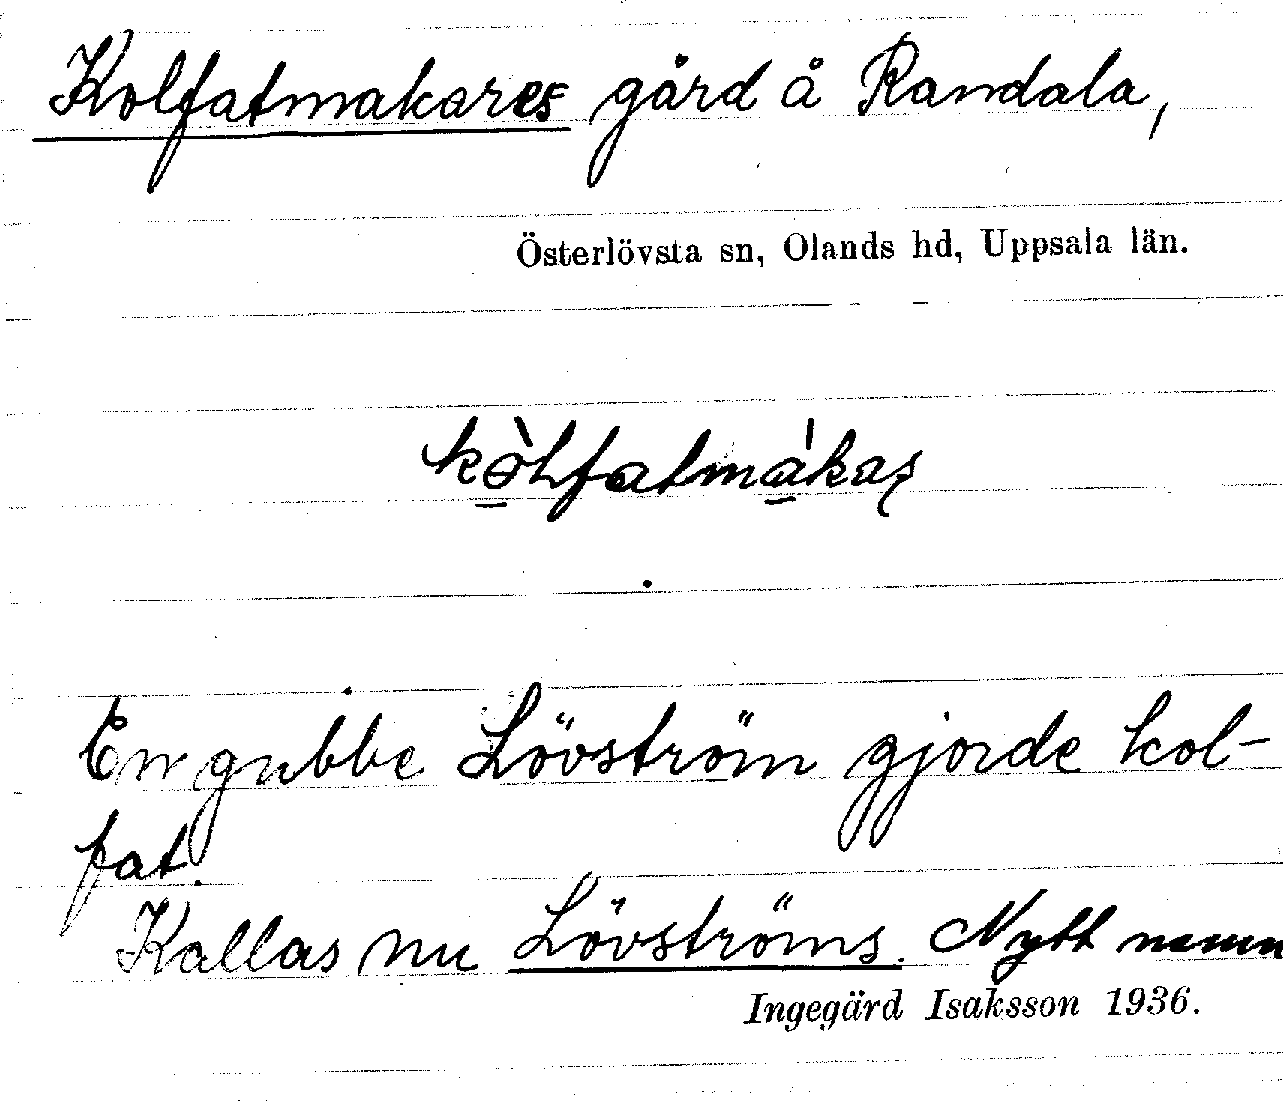 Kolfatmakares gård å Randala,
Österlövsta sn, Olands hd, Uppsala län.
En gubbe Lövström gjorde kol-
fat.
Kallas nu Lövströms. Nytt namn
Ingegärd Isaksson 1936.